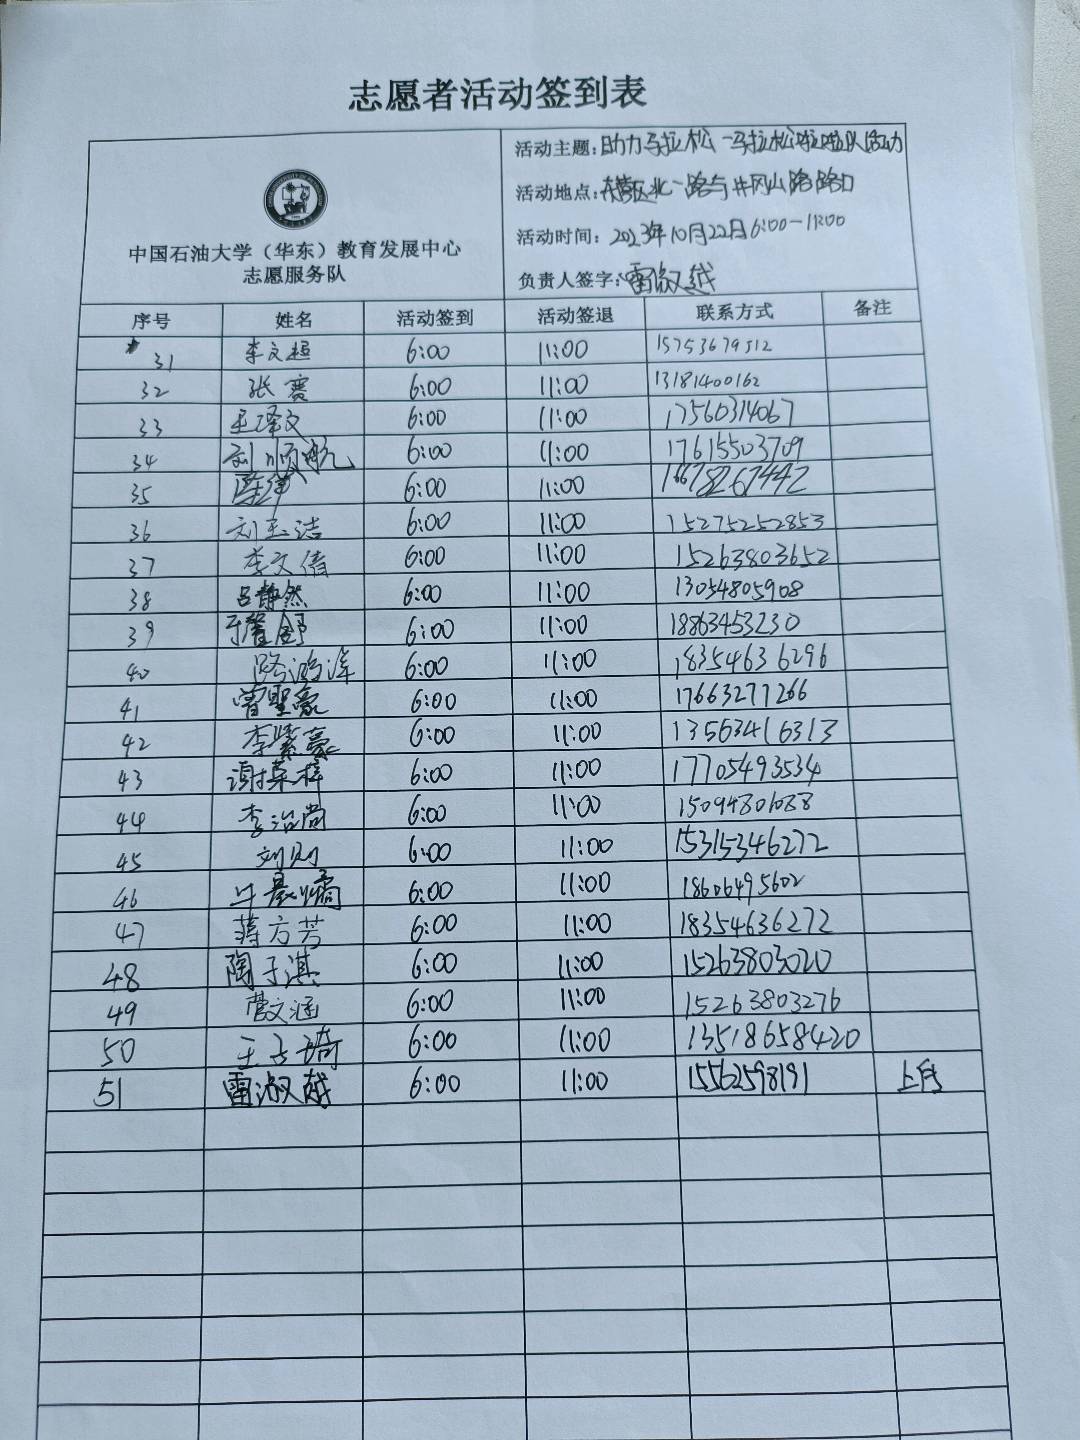 志愿者活动签到表
中国石油大学（华东）教育发展中心
志愿服务队
活动主题：助力马拉松-马拉松啦啦队活动
活动地点：东营区北一路与井冈山路路口
活动时间：2023年10月22日6:00-11:00
负责人签字：雷淑越
序号 姓名 活动签到 活动签退 联系方式 备注
31 李文超 6:00 11:00 15753679512
32 张赛 6:00 11:00 13181400162
33 王泽文 6:00 11:00 17560314067
34 刘顺航 6:00 11:00 17615503709
35 6:00 11:00 16678267442
36 刘玉洁 6:00 11:00 15275252853
37 李文倩 6:00 11:00 15263803652
38 吕静然 6:00 11:00 13054805908
39 于馨舒 6:00 11:00 18863453230
40 路鸿泽 6:00 11:00 18354636296
41 曾聖豪 6:00 11:00 17663277266
42 李紫豪 6:00 11:00 13563416313
43 谢荣梓 6:00 11:00 17705493534
44 李治尚 6:00 11:00
45 刘则 6:00 11:00 15315346272
46 6:00 11:00 18606495602
47 蒋方芳 6:00 11:00 18354636272
48 陶子淇 6:00 11:00 15263803020
49 菅文涵 6:00 11:00 15263803276
50 王子琦 6:00 11:00 13518658420
51 雷淑越 6:00 11:00 15562598191